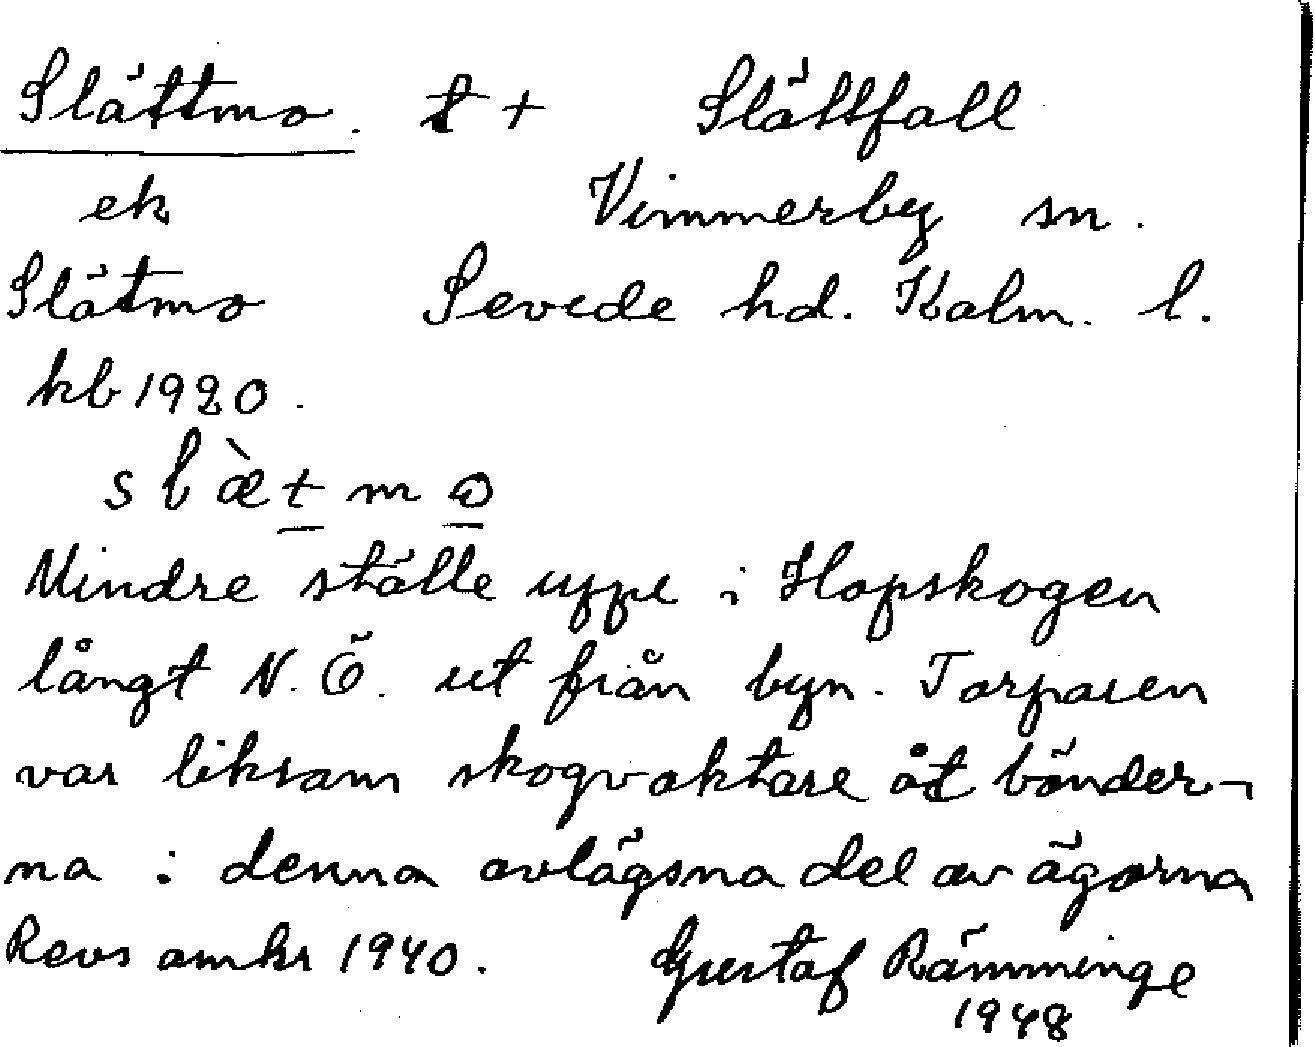 Slättmo. t + Slättfall
ek Vimmerby sn.
Slätmo Sevede hd. Kalm. l.
kb 1920.
slæ̀tmo
Mindre ställe uppe i Hopskogen
långt N. Ö. ut från byn. Torparen
var liksom skogvaktare åt bönder-
na i denna avlägsna del av ägorna
Revs omkr 1940. Gustaf Rämminge
1948